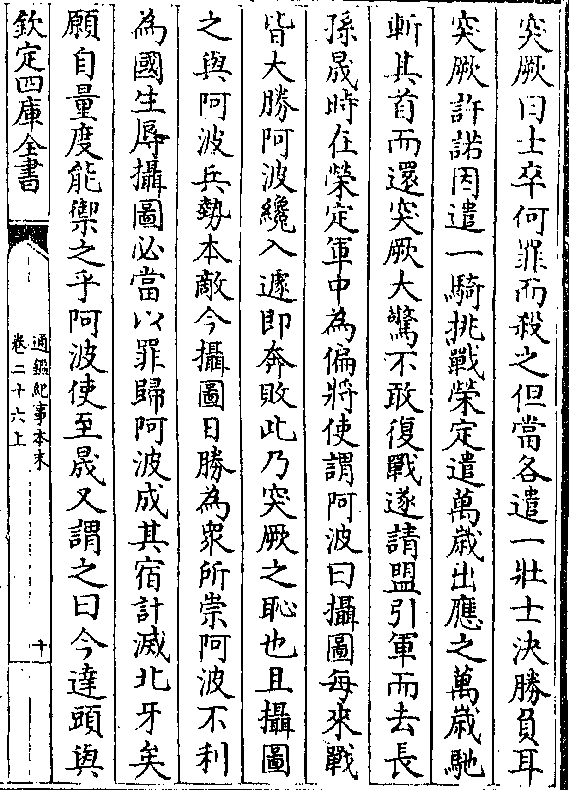 突厥曰士卒何罪而殺之但當各遣一壯士決勝負耳
突厥許諾因遣一騎挑戰榮定遣萬歲出應之萬歲馳
斬其首而還突厥大驚不敢復戰遂請盟引軍而去長
孫晟時在榮定軍中為偏將使謂阿波曰攝圖每來戰
皆大勝阿波纔入遽即奔敗此乃突厥之恥也且攝圖
之與阿波兵勢本敵今攝圖日勝為衆所崇阿波不利
為國生辱攝圖必當以罪歸阿波成其宿計滅北牙矣
願自量度能禦之乎阿波使至晟又謂之曰今達頭與
欽定四庫全書
通鑑紀事本末
卷二十六上
十